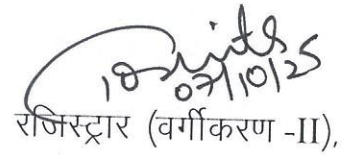 07/10/25
रजिस्ट्रार (वर्गीकरण -II),